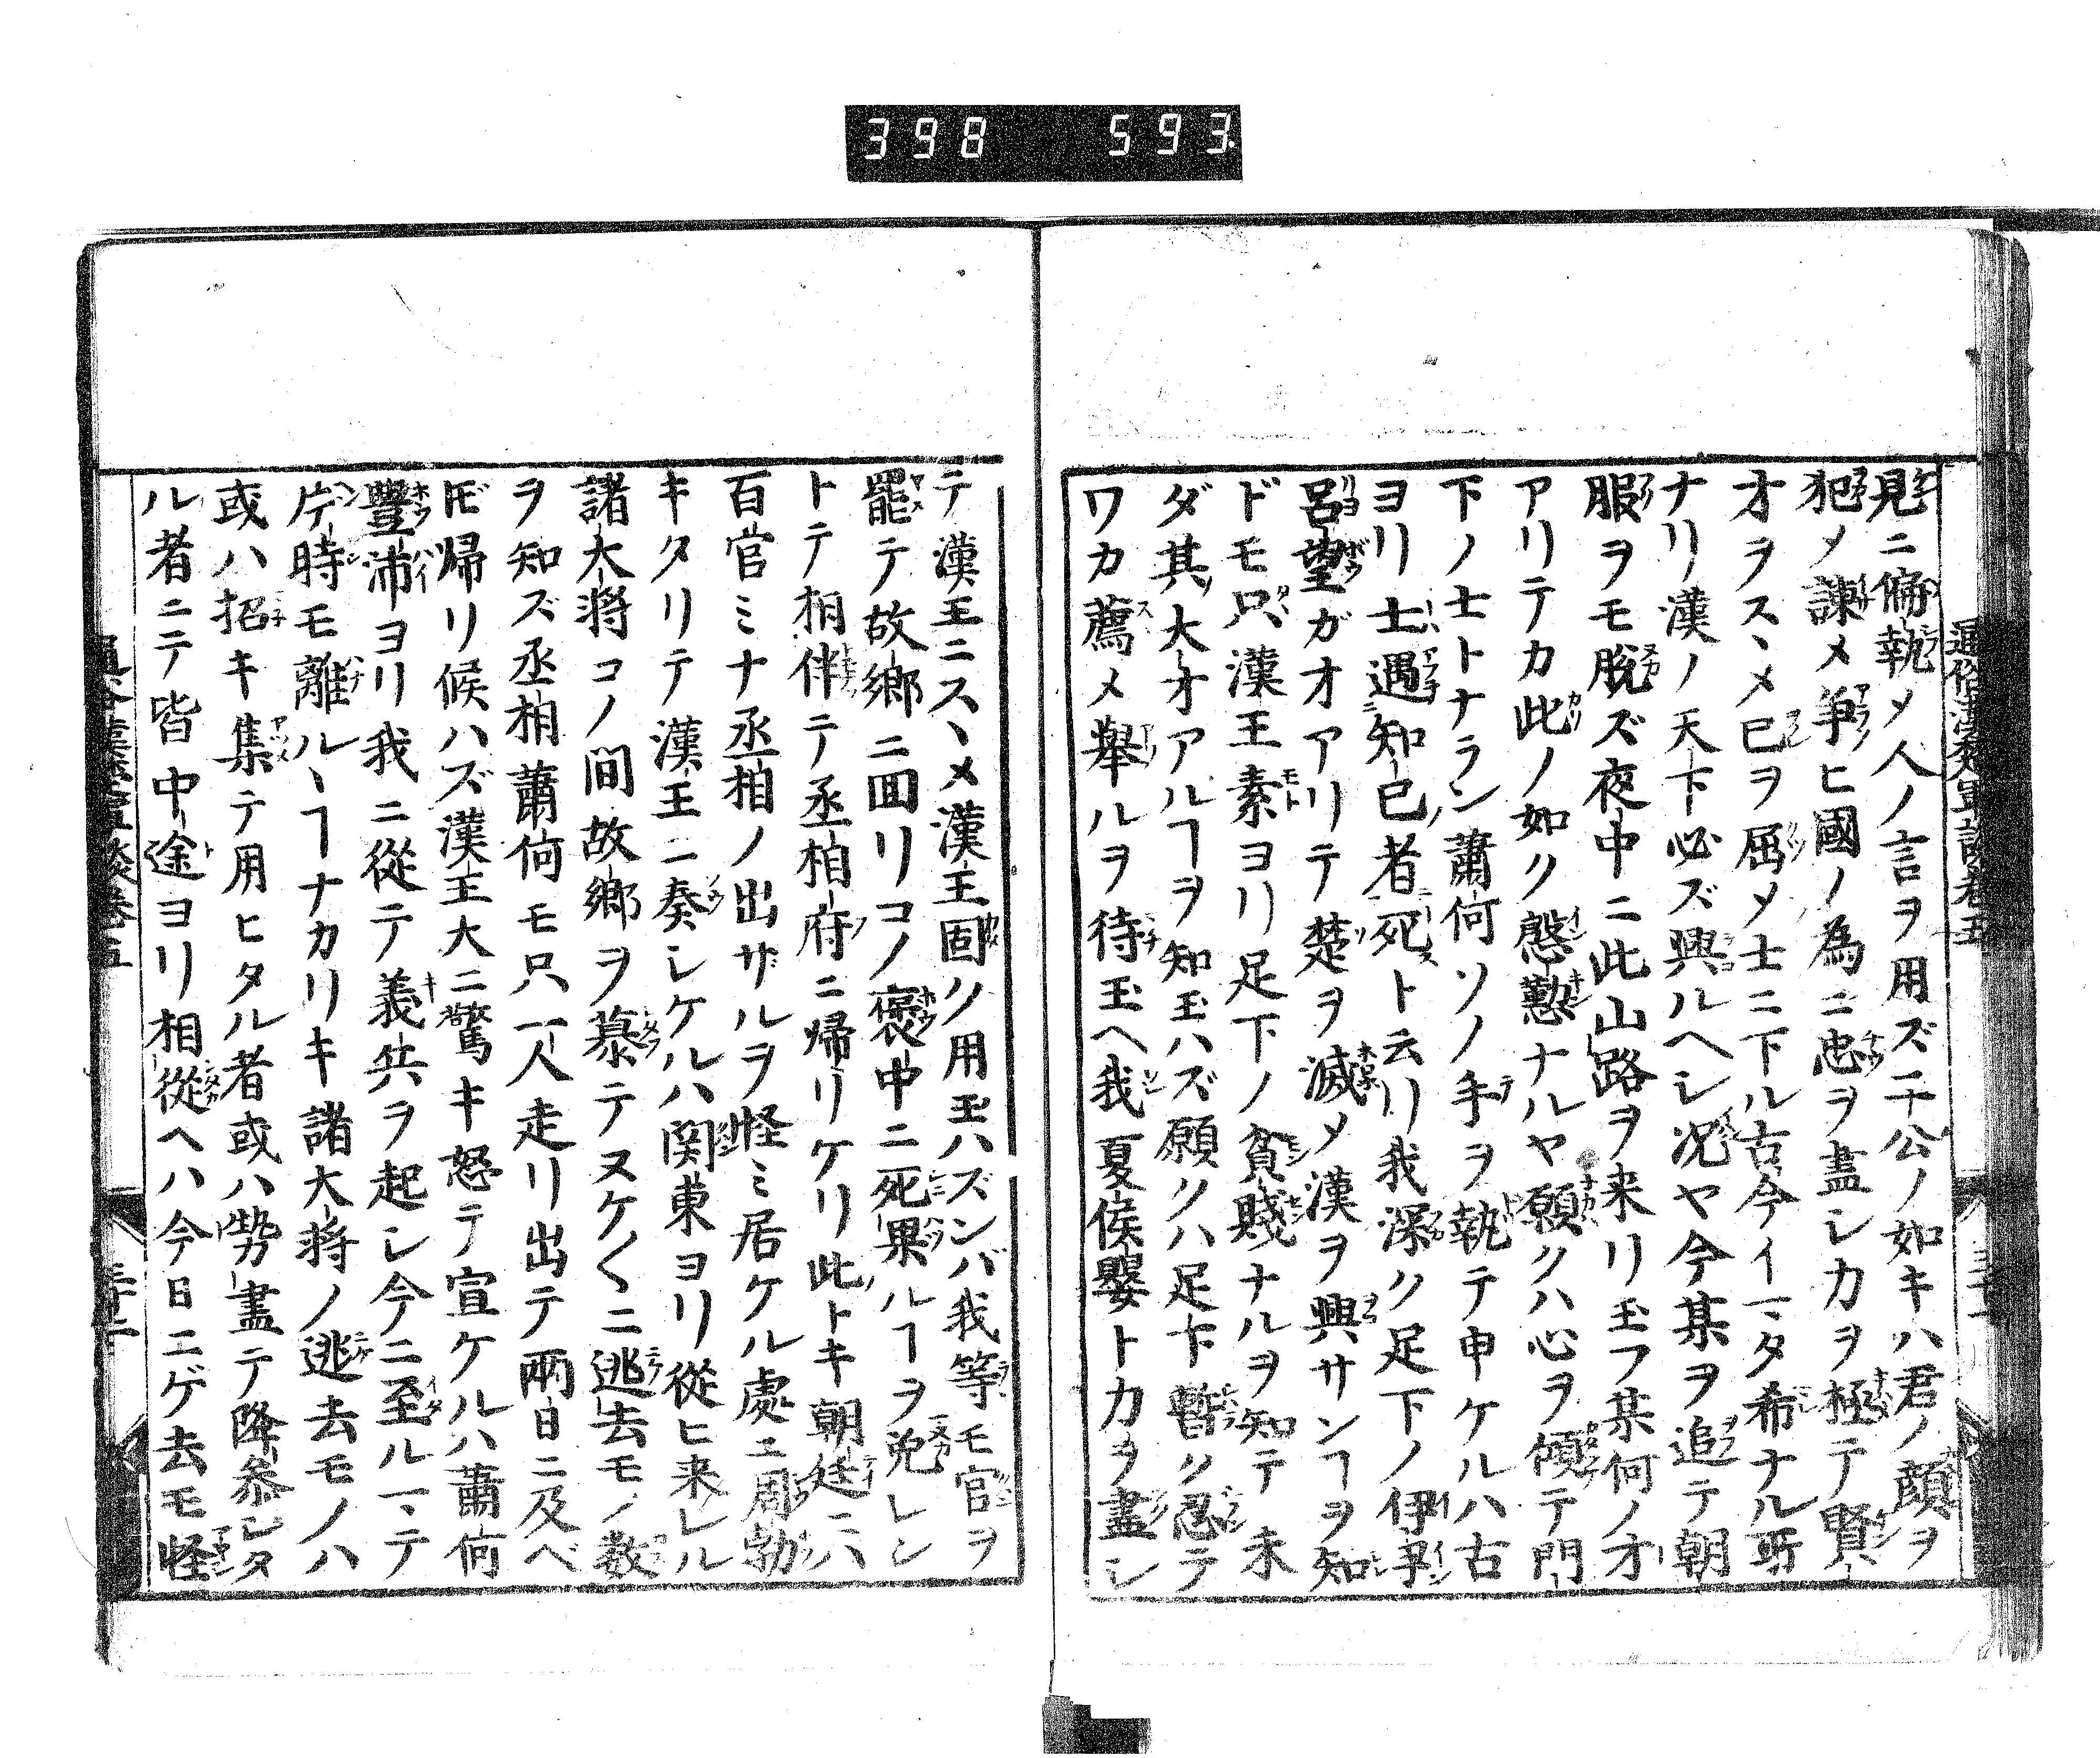 398 593
通俗漢楚軍談卷五
見ニ偏執メ人ノ言ヲ用ズ千公ノ如キハ君ノ顔ヲ
犯メ諫メ争ヒ國ノ為ニ忠ヲ盡シカヲ極テ賢
才ヲスヽメ已ヲ屈メ士ニ下ル古今イマタ希ナル所
ナリ漢ノ天下必ズ興ルヘシ况ヤ今某ヲ追テ朝
服ヲモ脱ズ夜中ニ此山路ヲ来リ玉フ某何ノ才
アリテカ此ノ如ク慇懃ナルヤ願クハ心ヲ傾テ門
下ノ士トナラン蕭何ソノ手ヲ執テ申ケルハ古
ヨリ士遇知已者死ト云リ我深ク足下ノ伊尹
呂望ガオアリテ楚ヲ滅メ漢ヲ興サンヿヲ知
ドモ只漢王素ヨリ足下ノ貧賤ナルヲ知テ未
ダ其大オアルヿヲ知玉ハズ願クハ足下暫ク忍テ
ワカ薦メ舉ルヲ待玉ヘ我夏侯嬰トカヲ盡シ
テ漢王ニスヽメ漢王固ク用玉ハズンバ我等モ官ヲ
罷テ故郷ニ回リコノ褒中ニ死果ルヿヲ免レン
トテ相伴テ丞相府ニ帰リケリ此トキ朝廷ニハ
百官ミナ丞相ノ出サルヲ怪ミ居ケル處ニ周勃
キタリテ漢王ニ奏シケルハ関東ヨリ從ヒ来レル
諸大將コノ間故郷ヲ慕テヌケ〱ニ逃去モノ数
ヲ知ズ丞相蕭何モ只一人走リ出テ兩日ニ及ベ
ドモ帰リ候ハズ漢王大ニ驚キ怒テ宣ケルハ蕭何
豐沛ヨリ我ニ從テ義兵ヲ起シ今ニ至ルマテ
片時モ離ルヽヿナカリキ諸大将ノ逃去モノハ
或ハ招キ集テ用ヒタル者或ハ勢盡テ降参シタ
ル者ニテ皆中途ヨリ相從ヘハ今日ニゲ去モ怪